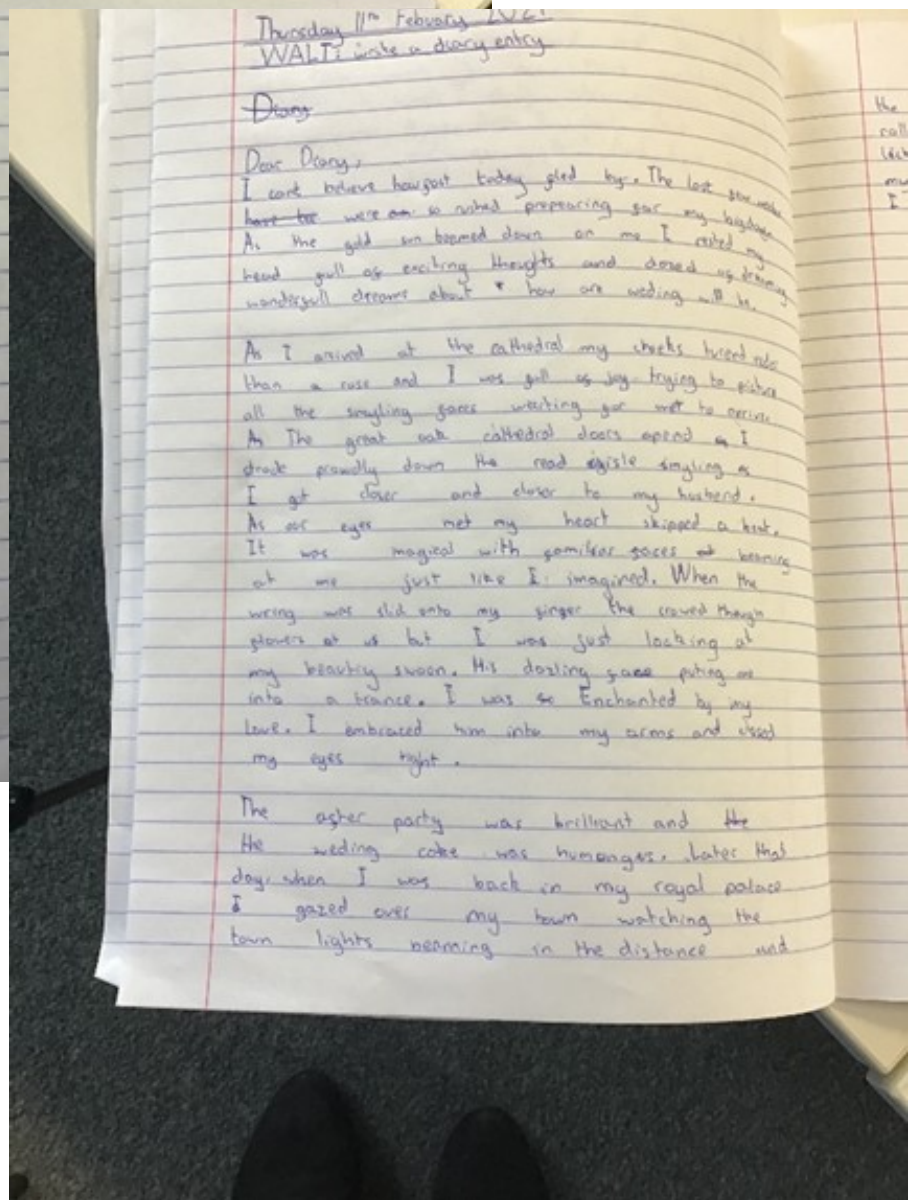 Thursday 11th Febuary 2021
WALT: write a diary entry
Diary
Dear Diary,
I cant believe how fast today fled by. The last few weeks
have were so rushed prepearing for my bigday
As the gold sun beamed down on me I rested my
head full of exciting thoughts and dozed of dreaming
wonderfull dreams about how are weding will be.
As I arived at the cathedral my cheeks turend reder
than a rose and I was full of joy trying to picture
all the smyling faces waiting for me to arrive.
As The great oak cathedral doors opend I
prowdly down the read aisle smyling as
I got closer and closer to my husbend.
As our eyes met my heart skipped a beat.
It was magical with familear faces beaming
at me just like I imagined. When the
wring was slid onto my finger the crowed though
flowers at us but I was just looking at
my beautiy swoon. His dazling face puting me
into a trance. I was Enchanted by my
love. I embraced him into my arms and closed
my eyes tight.
The after party was brilliant and the
the weding cake was humonges. Later that
day, when I was back in my royal palace
I gazed over my town watching the
town lights beaming in the distance and
the
call
my
I